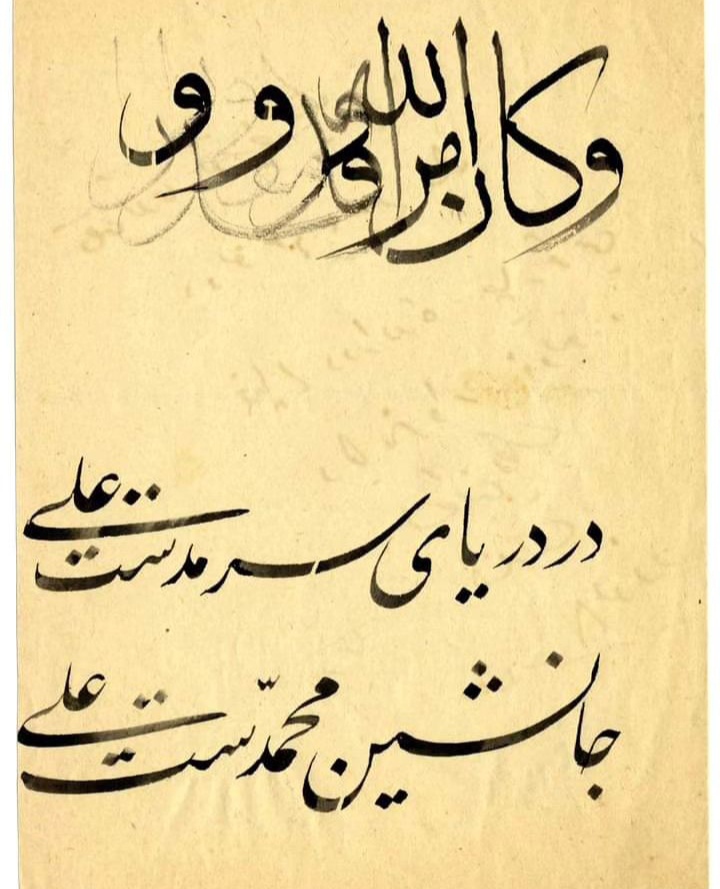 وکان امر الله و و
در دریای سرمدست علی
جانشین محمّدست علی